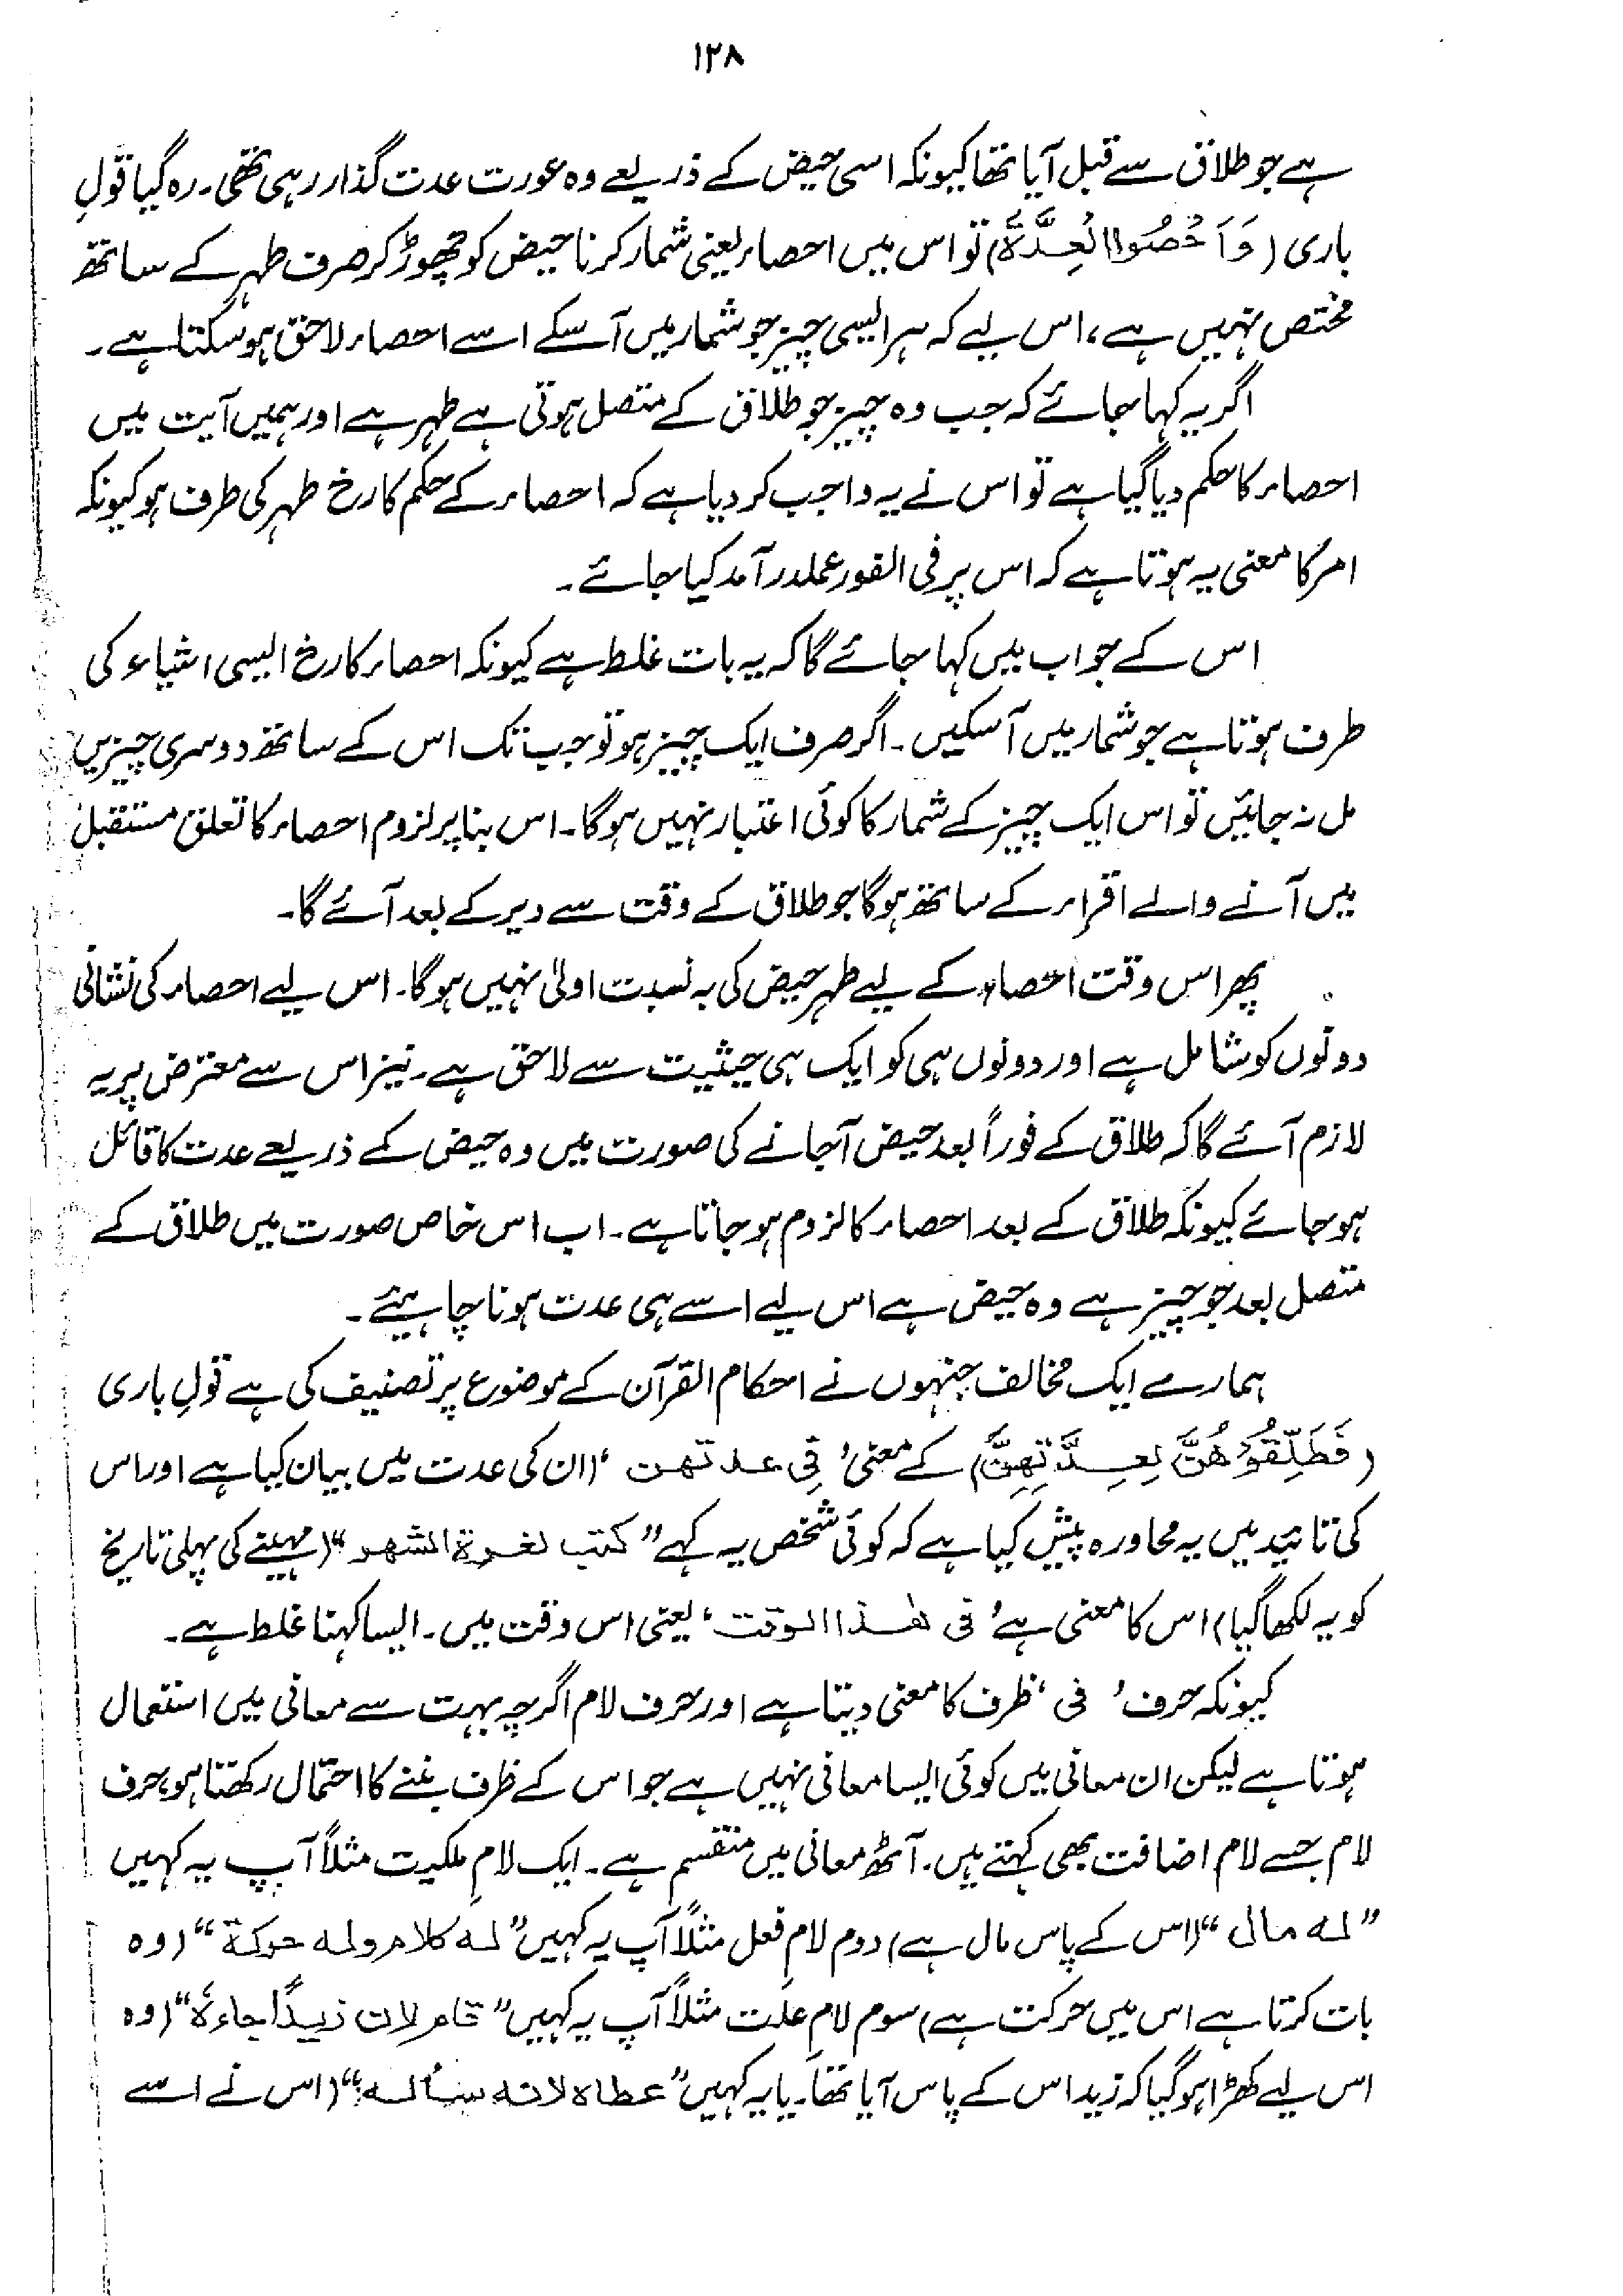 ۱۲۸
ہے جو طلاق سے قبل آیا تھا کیونکہ اسی حیض کے ذریعے وہ عورت عدت گذار رہی تھی۔ رہ گیا قولِ
باری (وَاَحْصُوا الْعِدَّةَ) تو اس میں احصاء یعنی شمار کرنا حیض کو چھوڑ کر صرف طہر کے ساتھ
مختص نہیں ہے، اس لیے کہ ہر ایسی چیز جو شمار میں آسکے اسے احصاء لاحق ہو سکتا ہے۔
اگر یہ کہا جائے کہ جب وہ چیز جو طلاق کے متصل ہوتی ہے طہر ہے اور ہمیں آیت میں
احصاء کا حکم دیا گیا ہے تو اس نے یہ واجب کر دیا ہے کہ احصاء کے حکم کا رخ طہر کی طرف ہو کیونکہ
امر کا معنی یہ ہوتا ہے کہ اس پر فی الفور عملدرآمد کیا جائے۔
اس کے جواب میں کہا جائے گا کہ یہ بات غلط ہے کیونکہ احصاء کا رخ ایسی اشیاء کی
طرف ہوتا ہے جو شمار میں آسکیں۔ اگر صرف ایک چیز ہو تو جب تک اس کے ساتھ دوسری چیزیں
مل نہ جائیں تو اس ایک چیز کے شمار کا کوئی اعتبار نہیں ہوگا۔ اس بنا پر لزوم احصاء کا تعلق مستقبل
میں آنے والے اقراء کے ساتھ ہوگا جو طلاق کے وقت سے دیر کے بعد آئے گا۔
پھر اس وقت احصاء کے لیے طہر حیض کی بہ نسبت اولیٰ نہیں ہوگا۔ اس لیے احصاء کی نشانی
دونوں کو شامل ہے اور دونوں ہی کو ایک ہی حیثیت سے لاحق ہے۔ نیز اس سے معترض پر یہ
لازم آئے گا کہ طلاق کے فوراً بعد حیض آجانے کی صورت میں وہ حیض کے ذریعے عدت کا قائل
ہو جائے کیونکہ طلاق کے بعد احصاء کا لزوم ہو جاتا ہے۔ اب اس خاص صورت میں طلاق کے
متصل بعد جو چیز ہے وہ حیض ہے اس لیے اسے ہی عدت ہونا چاہیئے۔
ہمارے ایک مخالف جنہوں نے احکام القرآن کے موضوع پر تصنیف کی ہے قولِ باری
(فَطَلِّقُوْهُنَّ لِعِدَّتِهِنَّ) کے معنی ’فی عدتهن‘ (ان کی عدت میں بیان کیا ہے اور اس
کی تائید میں یہ محاورہ پیش کیا ہے کہ کوئی شخص یہ کہے ”کتب لغرة الشهر“ (مہینے کی پہلی تاریخ
کو یہ لکھا گیا) اس کا معنی ہے ’فی هذا الوقت‘ یعنی اس وقت میں۔ ایسا کہنا غلط ہے۔
کیونکہ حرف ’فی‘ ظرف کا معنی دیتا ہے اور حرف لام اگرچہ بہت سے معانی میں استعمال
ہوتا ہے لیکن ان معانی میں کوئی ایسا معانی نہیں ہے جو اس کے ظرف بننے کا احتمال رکھتا ہو، حرف
لام جسے لام اضافت بھی کہتے ہیں۔ آٹھ معانی میں منقسم ہے۔ ایک لامِ ملکیت مثلاً آپ یہ کہیں
”له مال“ (اس کے پاس مال ہے) دوم لامِ فعل مثلاً آپ یہ کہیں ”له کلام وله حرکة“ (وہ
بات کرتا ہے اس میں حرکت ہے) سوم لامِ علت مثلاً آپ یہ کہیں ”قام لان زیدًا جاءهٗ“ (وہ
اس لیے کھڑا ہوگیا کہ زید اس کے پاس آیا تھا۔ یا یہ کہیں ”عطاه لانه سأله“ (اس نے اسے